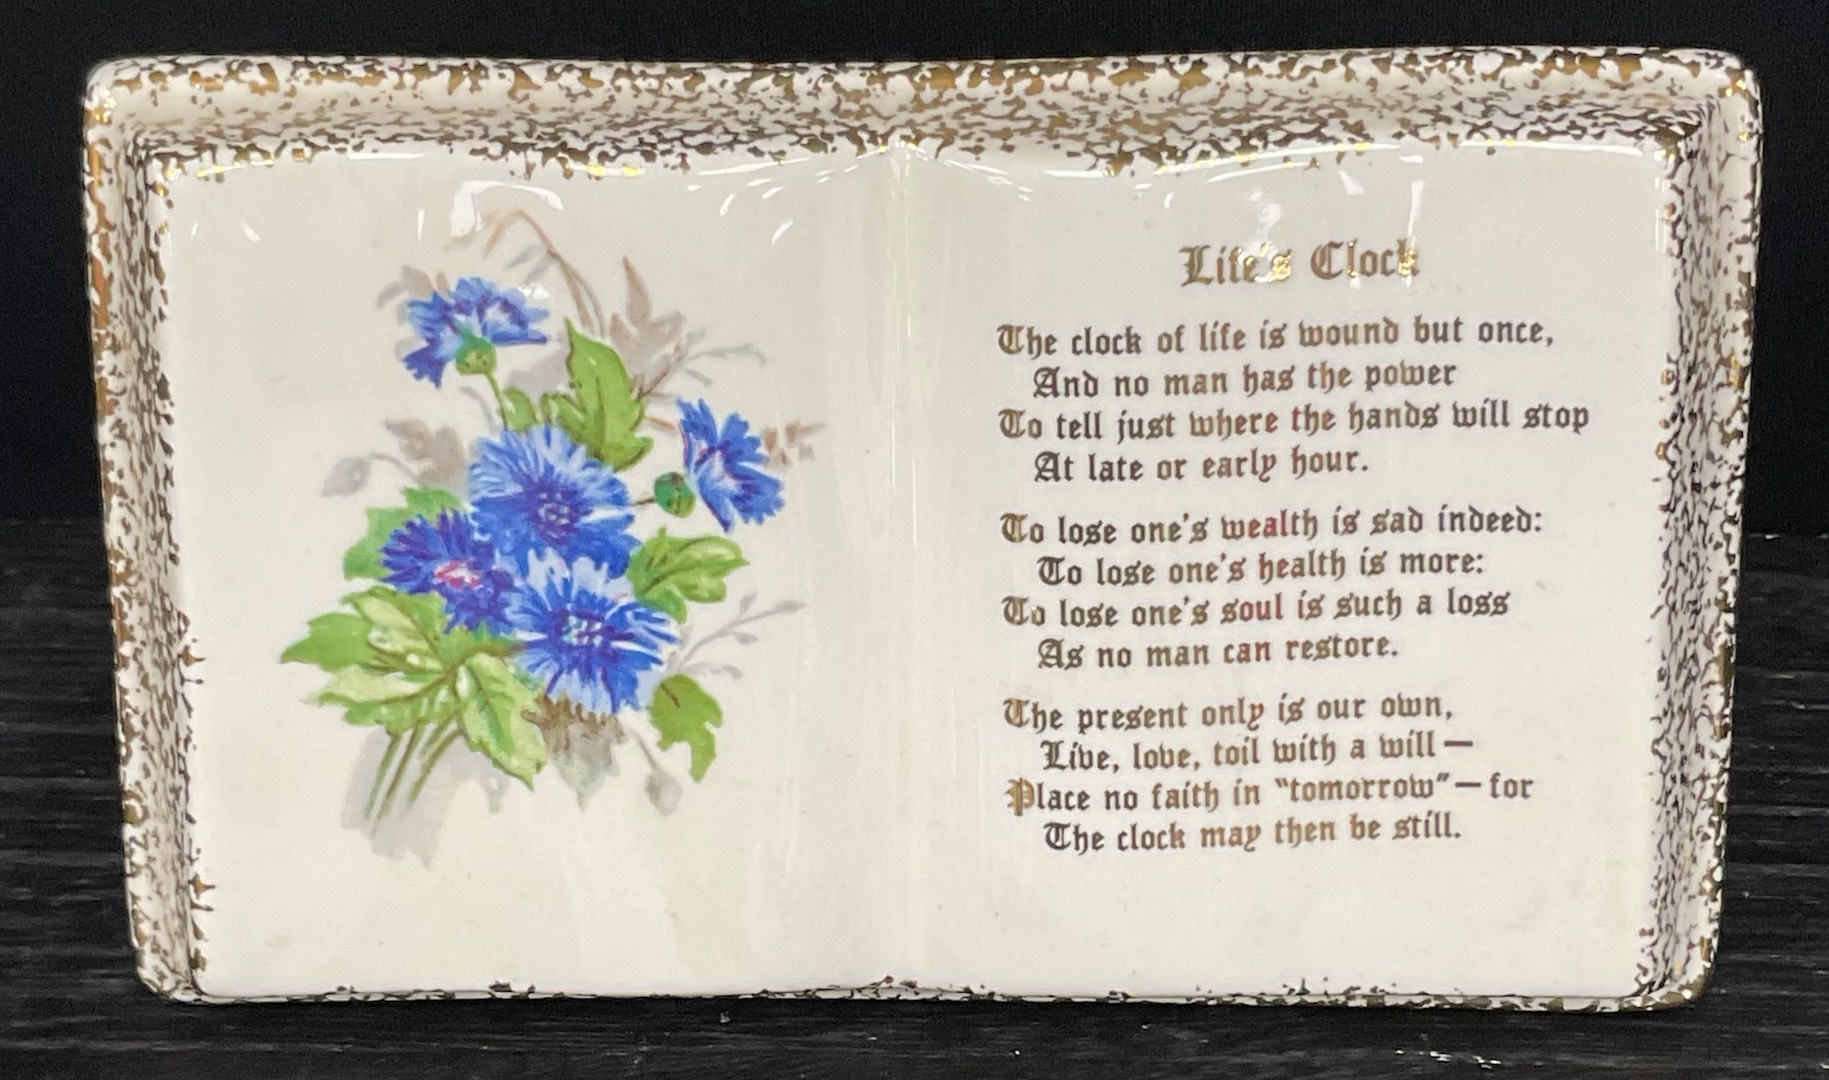 Life's Clock
The clock of life is wound but once,
And no man has the power
To tell just where the hands will stop
At late or early hour.
To lose one's wealth is sad indeed:
To lose one's health is more:
To lose one's soul is such a loss
As no man can restore.
The present only is our own,
Live, love, toil with a will—
Place no faith in "tomorrow"—for
The clock may then be still.